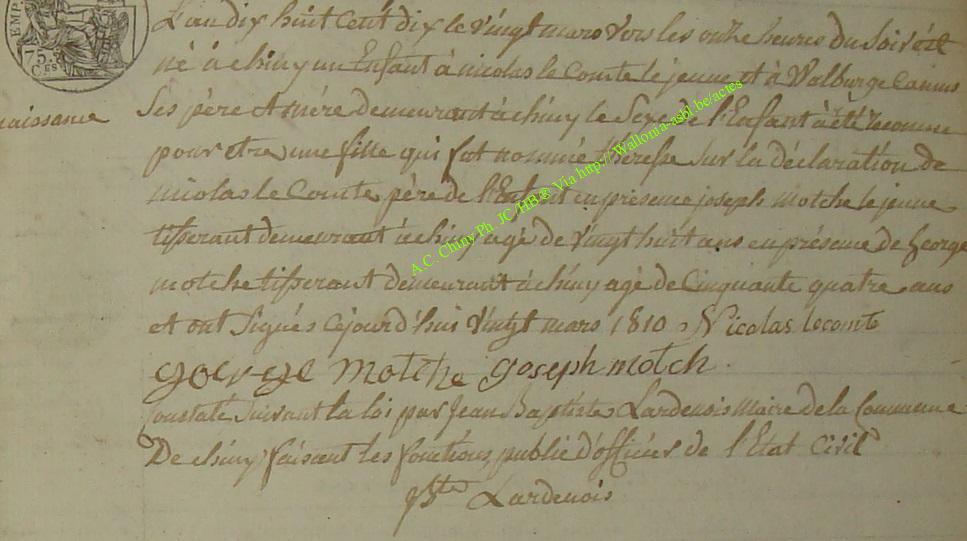 EMP
75.
CES
L'an dix huit cent dix le vingt mars vers les onhe heures du soir est
né à chiny un Enfant à nicolas le Comte le jeune et à Walburge Camus
naissance
Ses père et mère demeurant à chiny le Sexe de l'Enfant à été reconnu
pour être une fille qui fut nommée theresse sur la déclaration de
nicolas le Comte père de l'Enfant en présence joseph motche le jeune
tisserant demeurant à chiny agé de vingt huit ans en présence de George
motche tisserant demeurant à chiny agé de Cinquante quatre ans
et ont Signés cejourd'hui vingt mars 1810 Nicolas lecomte
george motche joseph motch
Constaté Suivant la loi par Jean Baptiste Lardenois Maire de la Commune
De chiny faisant les fonctions public d'officier de l'Etat Civil
Lardenois
A.C. Chiny Ph. JC/HB ® Via http://Wallonia-asbl.be/actes